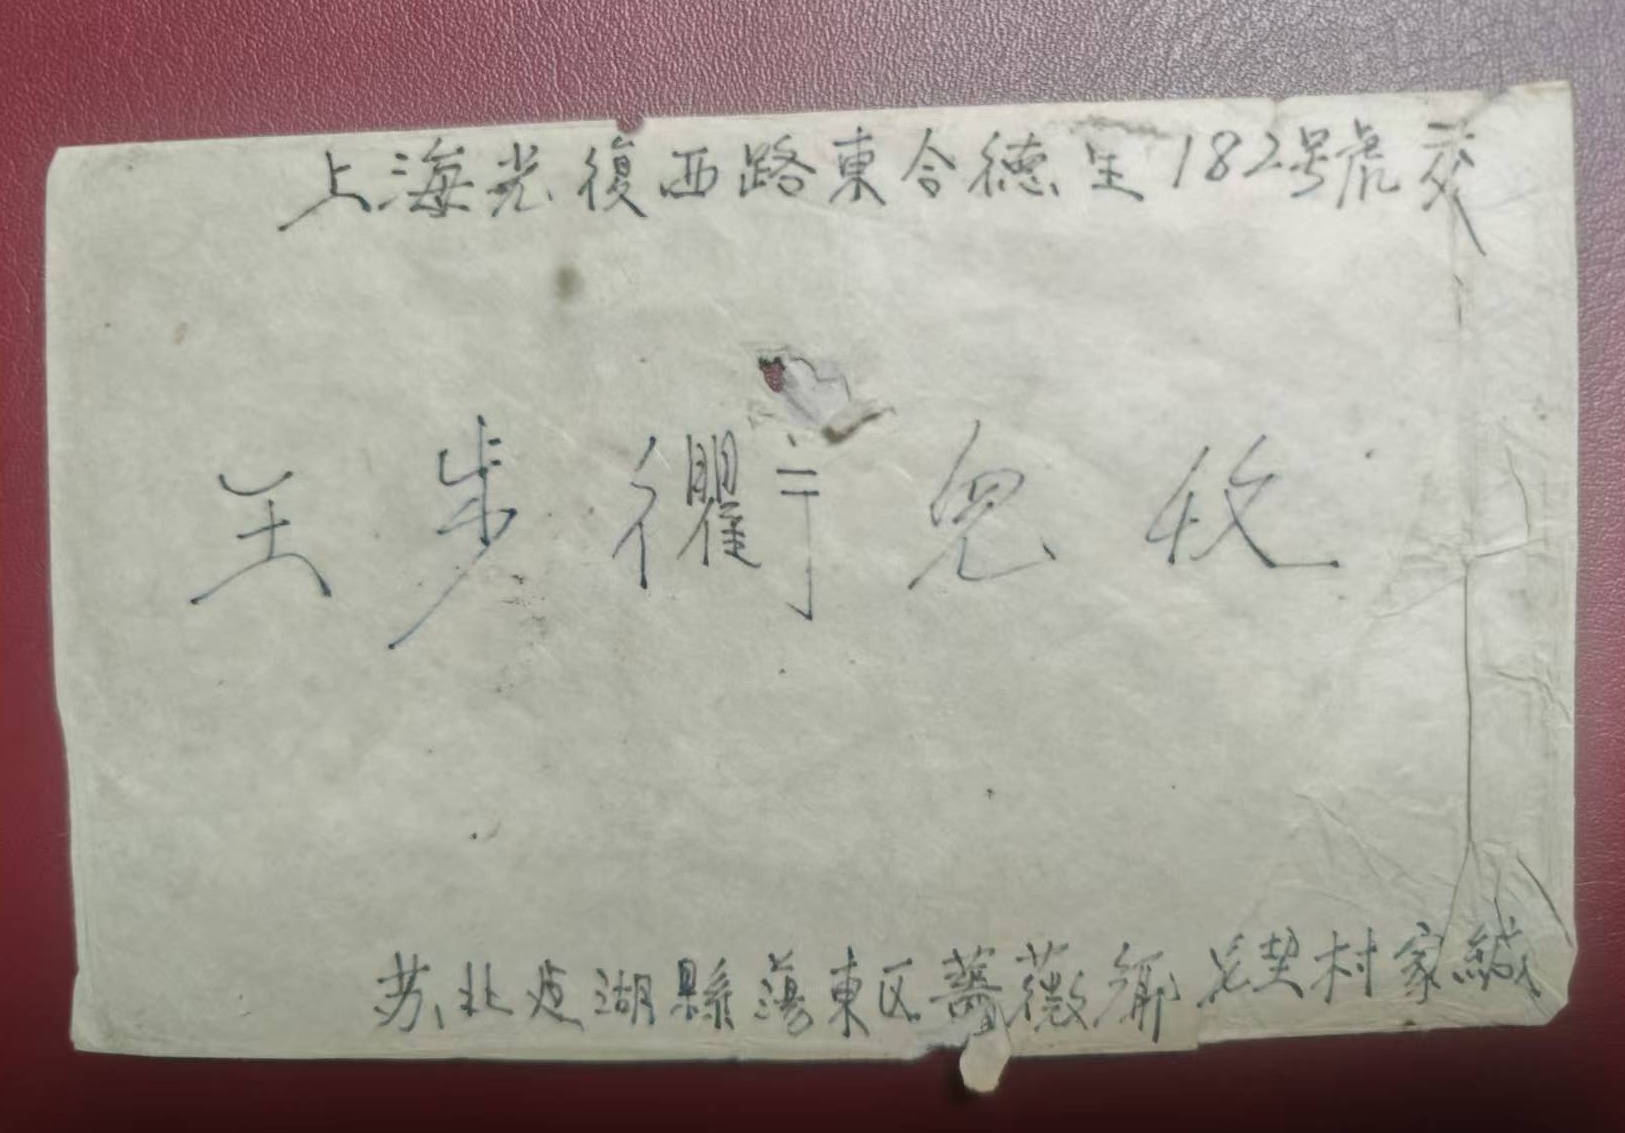 上海光復西路東合德里182号虎交
王步衢二兒收
苏北建湖縣蕩東区薔薇鄉村家緘